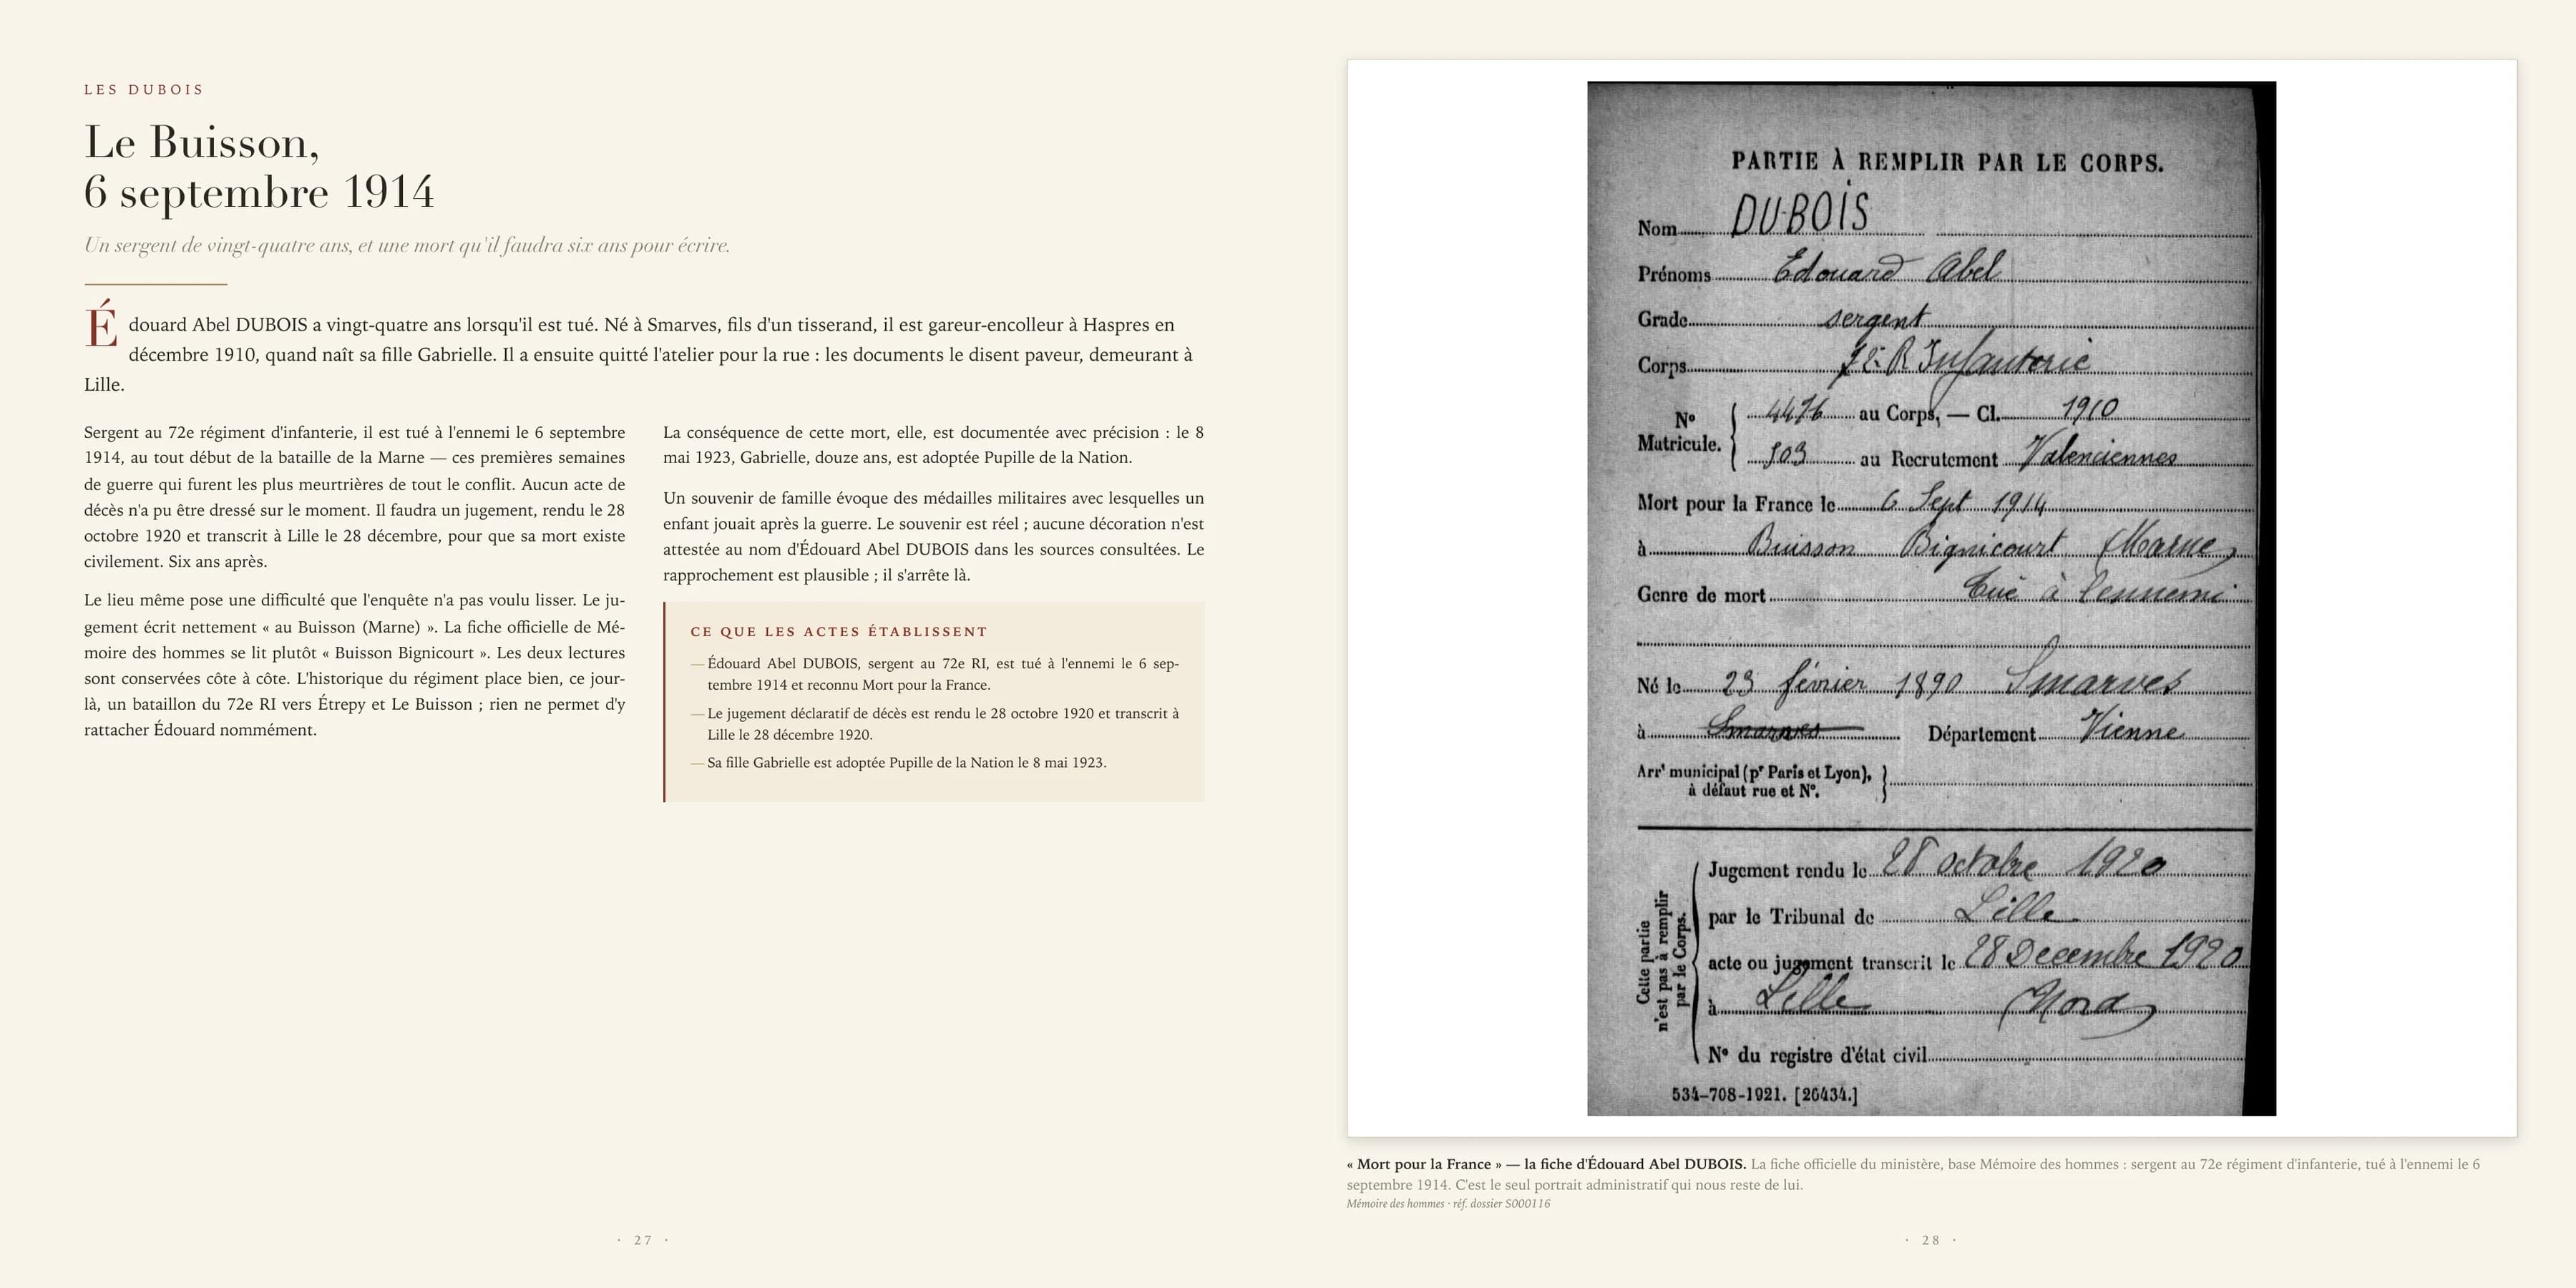 LES DUBOIS
Le Buisson,
6 septembre 1914
Un sergent de vingt-quatre ans, et une mort qu'il faudra six ans pour écrire.
Édouard Abel DUBOIS a vingt-quatre ans lorsqu'il est tué. Né à Smarves, fils d'un tisserand, il est gareur-encolleur à Haspres en
décembre 1910, quand naît sa fille Gabrielle. Il a ensuite quitté l'atelier pour la rue : les documents le disent paveur, demeurant à
Lille.
Sergent au 72e régiment d'infanterie, il est tué à l'ennemi le 6 septembre
1914, au tout début de la bataille de la Marne — ces premières semaines
de guerre qui furent les plus meurtrières de tout le conflit. Aucun acte de
décès n'a pu être dressé sur le moment. Il faudra un jugement, rendu le 28
octobre 1920 et transcrit à Lille le 28 décembre, pour que sa mort existe
civilement. Six ans après.
Le lieu même pose une difficulté que l'enquête n'a pas voulu lisser. Le ju-
gement écrit nettement « au Buisson (Marne) ». La fiche officielle de Mé-
moire des hommes se lit plutôt « Buisson Bignicourt ». Les deux lectures
sont conservées côte à côte. L'historique du régiment place bien, ce jour-
là, un bataillon du 72e RI vers Étrepy et Le Buisson ; rien ne permet d'y
rattacher Édouard nommément.
La conséquence de cette mort, elle, est documentée avec précision : le 8
mai 1923, Gabrielle, douze ans, est adoptée Pupille de la Nation.
Un souvenir de famille évoque des médailles militaires avec lesquelles un
enfant jouait après la guerre. Le souvenir est réel ; aucune décoration n'est
attestée au nom d'Édouard Abel DUBOIS dans les sources consultées. Le
rapprochement est plausible ; il s'arrête là.
CE QUE LES ACTES ÉTABLISSENT
— Édouard Abel DUBOIS, sergent au 72e RI, est tué à l'ennemi le 6 sep-
tembre 1914 et reconnu Mort pour la France.
— Le jugement déclaratif de décès est rendu le 28 octobre 1920 et transcrit à
Lille le 28 décembre 1920.
— Sa fille Gabrielle est adoptée Pupille de la Nation le 8 mai 1923.
· 27 ·
PARTIE À REMPLIR PAR LE CORPS.
Nom DUBOIS
Prénoms Edouard Abel
Grade sergent
Corps 72e R Infanterie
N° Matricule. 4476 au Corps, — Cl. 1910
au Recrutement Valenciennes
Mort pour la France le 6 Sept 1914
à Buisson Bignicourt (Marne)
Genre de mort Tué à l'ennemi
Né le 23 février 1890 Smarves
à Smarves Département Vienne
Arrt municipal (pr Paris et Lyon),
à défaut rue et N°.
Cette partie
n'est pas à remplir
par le Corps.
Jugement rendu le 28 octobre 1920
par le Tribunal de Lille
acte ou jugement transcrit le 28 Decembre 1920
à Lille (Nord)
N° du registre d'état civil
534-708-1921. [26434.]
« Mort pour la France » — la fiche d'Édouard Abel DUBOIS. La fiche officielle du ministère, base Mémoire des hommes : sergent au 72e régiment d'infanterie, tué à l'ennemi le 6
septembre 1914. C'est le seul portrait administratif qui nous reste de lui.
Mémoire des hommes · réf. dossier S000116
· 28 ·